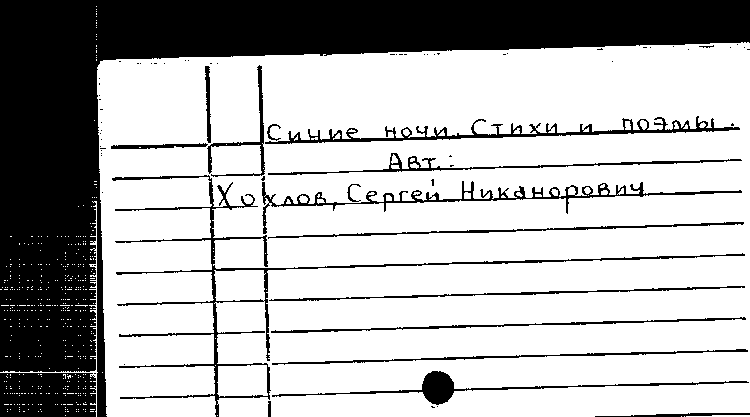 Синие ночи. Стихи и поэмы.
Авт.:
Хохлов, Сергей Никанорович